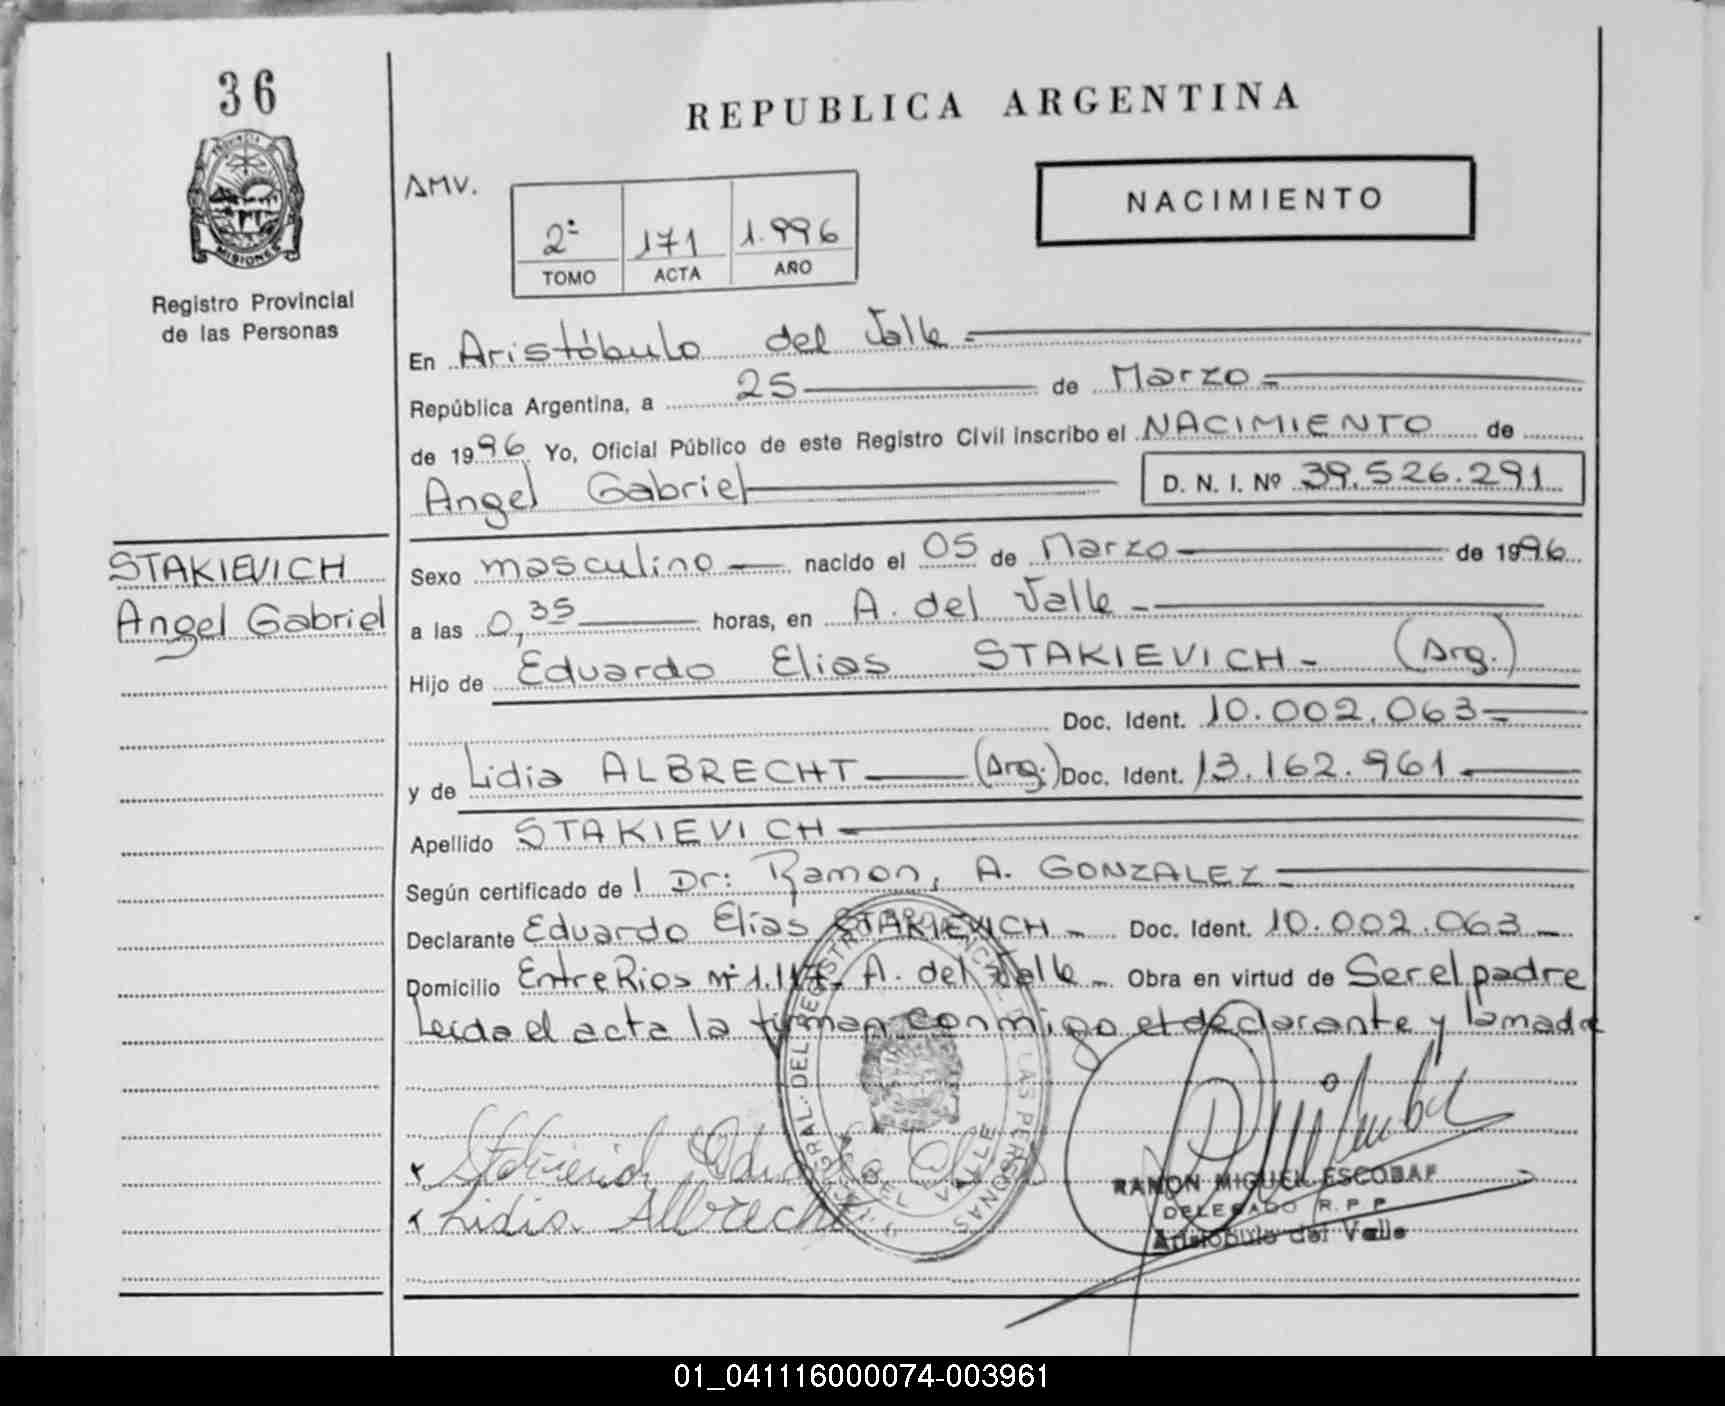 36
REPUBLICA ARGENTINA
PROVINCIA DE
MISIONES
Registro Provincial
de las Personas
AMV.
2º 171 1.996
TOMO ACTA AÑO
NACIMIENTO
En Aristóbulo del Valle
República Argentina, a 25 de Marzo
de 1996 Yo, Oficial Público de este Registro Civil inscribo el NACIMIENTO de
Angel Gabriel D. N. I. Nº 39.526.291
STAKIEVICH
Angel Gabriel
Sexo masculino nacido el 05 de Marzo de 1996
a las 0,35 horas, en A. del Valle
Hijo de Eduardo Elias STAKIEVICH (Arg.)
Doc. Ident. 10.002.063
y de Lidia ALBRECHT (Arg.) Doc. Ident. 13.162.961
Apellido STAKIEVICH
Según certificado de l Dr: Ramon, A. GONZALEZ
Declarante Eduardo Elias STAKIEVICH Doc. Ident. 10.002.063
Domicilio Entre Rios Nº 1.117. A. del Valle Obra en virtud de Ser el padre
Leida el acta la firman conmigo el declarante y la madre
Lidia Albrecht
RAMON MIGUEL ESCOBAR
DELEGADO R.P.P
Aristobulo del Valle
01_041116000074-003961